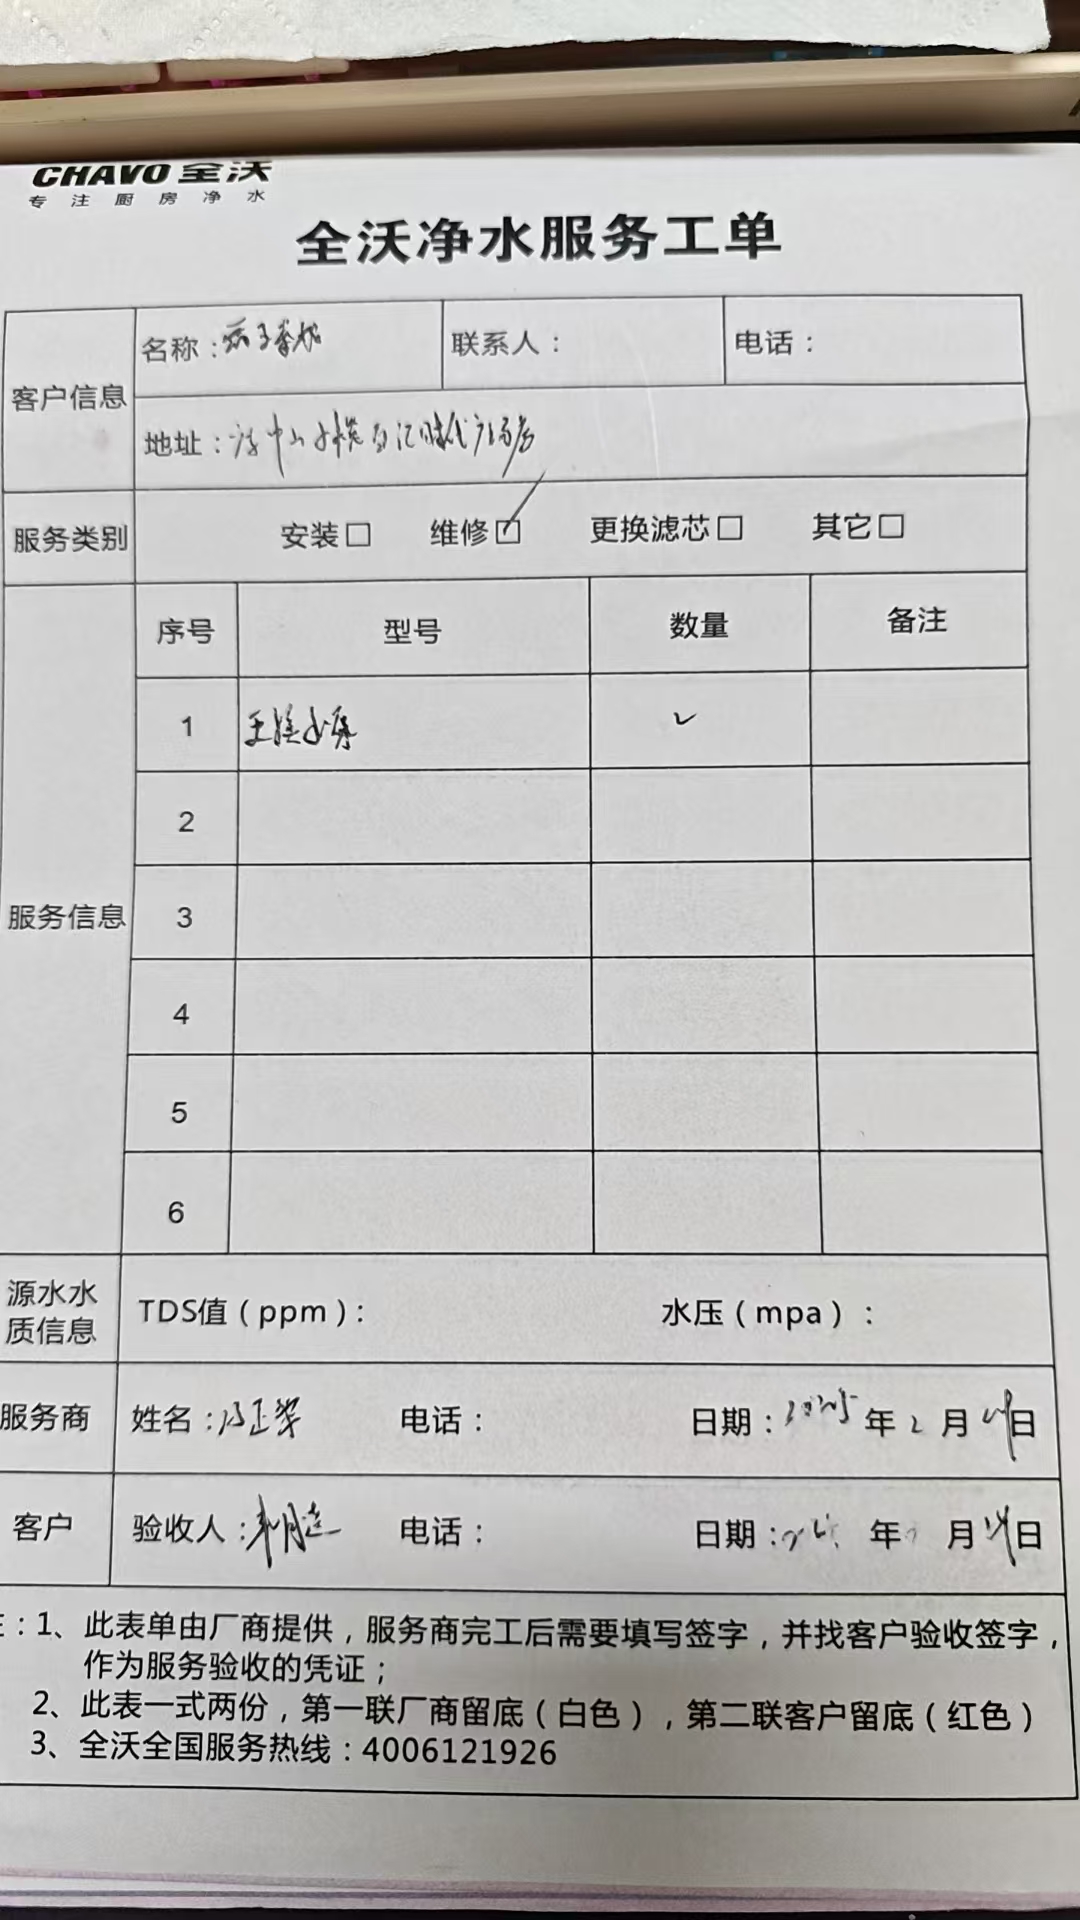 CHAVO 全沃
专注厨房净水
全沃净水服务工单
客户信息
名称：
联系人：
电话：
地址：
服务类别
安装□ 维修☑ 更换滤芯□ 其它□
服务信息
序号 型号 数量 备注
1
2
3
4
5
6
源水水质信息
TDS值（ppm）：
水压（mpa）：
服务商
姓名：
电话：
日期：2025年2月 日
客户
验收人：
电话：
日期： 年 月 日
：1、此表单由厂商提供，服务商完工后需要填写签字，并找客户验收签字，
作为服务验收的凭证；
2、此表一式两份，第一联厂商留底（白色），第二联客户留底（红色）
3、全沃全国服务热线：4006121926